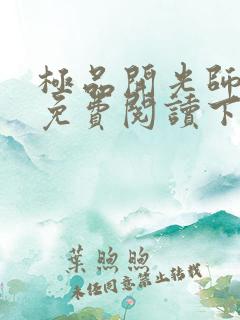 極品開光師
免費閱讀下
葉煦煦
未經同意禁止轉載